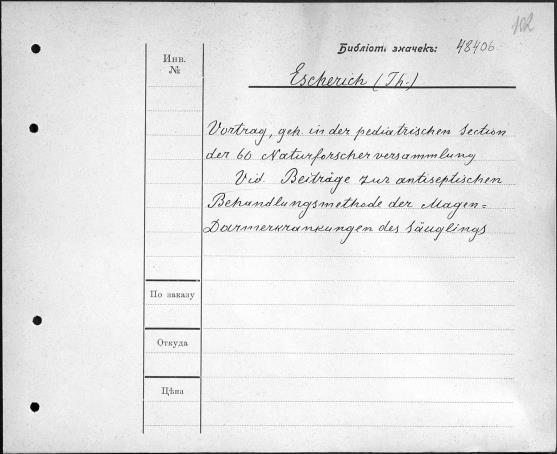 102
Библіот. значекъ: 48406
Инв.
№
Escherich (Th.)
Vortrag, geh. in der pediatrischen Section
der 60 Naturforscherversammlung
Vid. Beiträge zur antiseptischen
Behandlungsmethode der Magen=
Darmerkrankungen des Säuglings
По заказу
Откуда
Цѣна